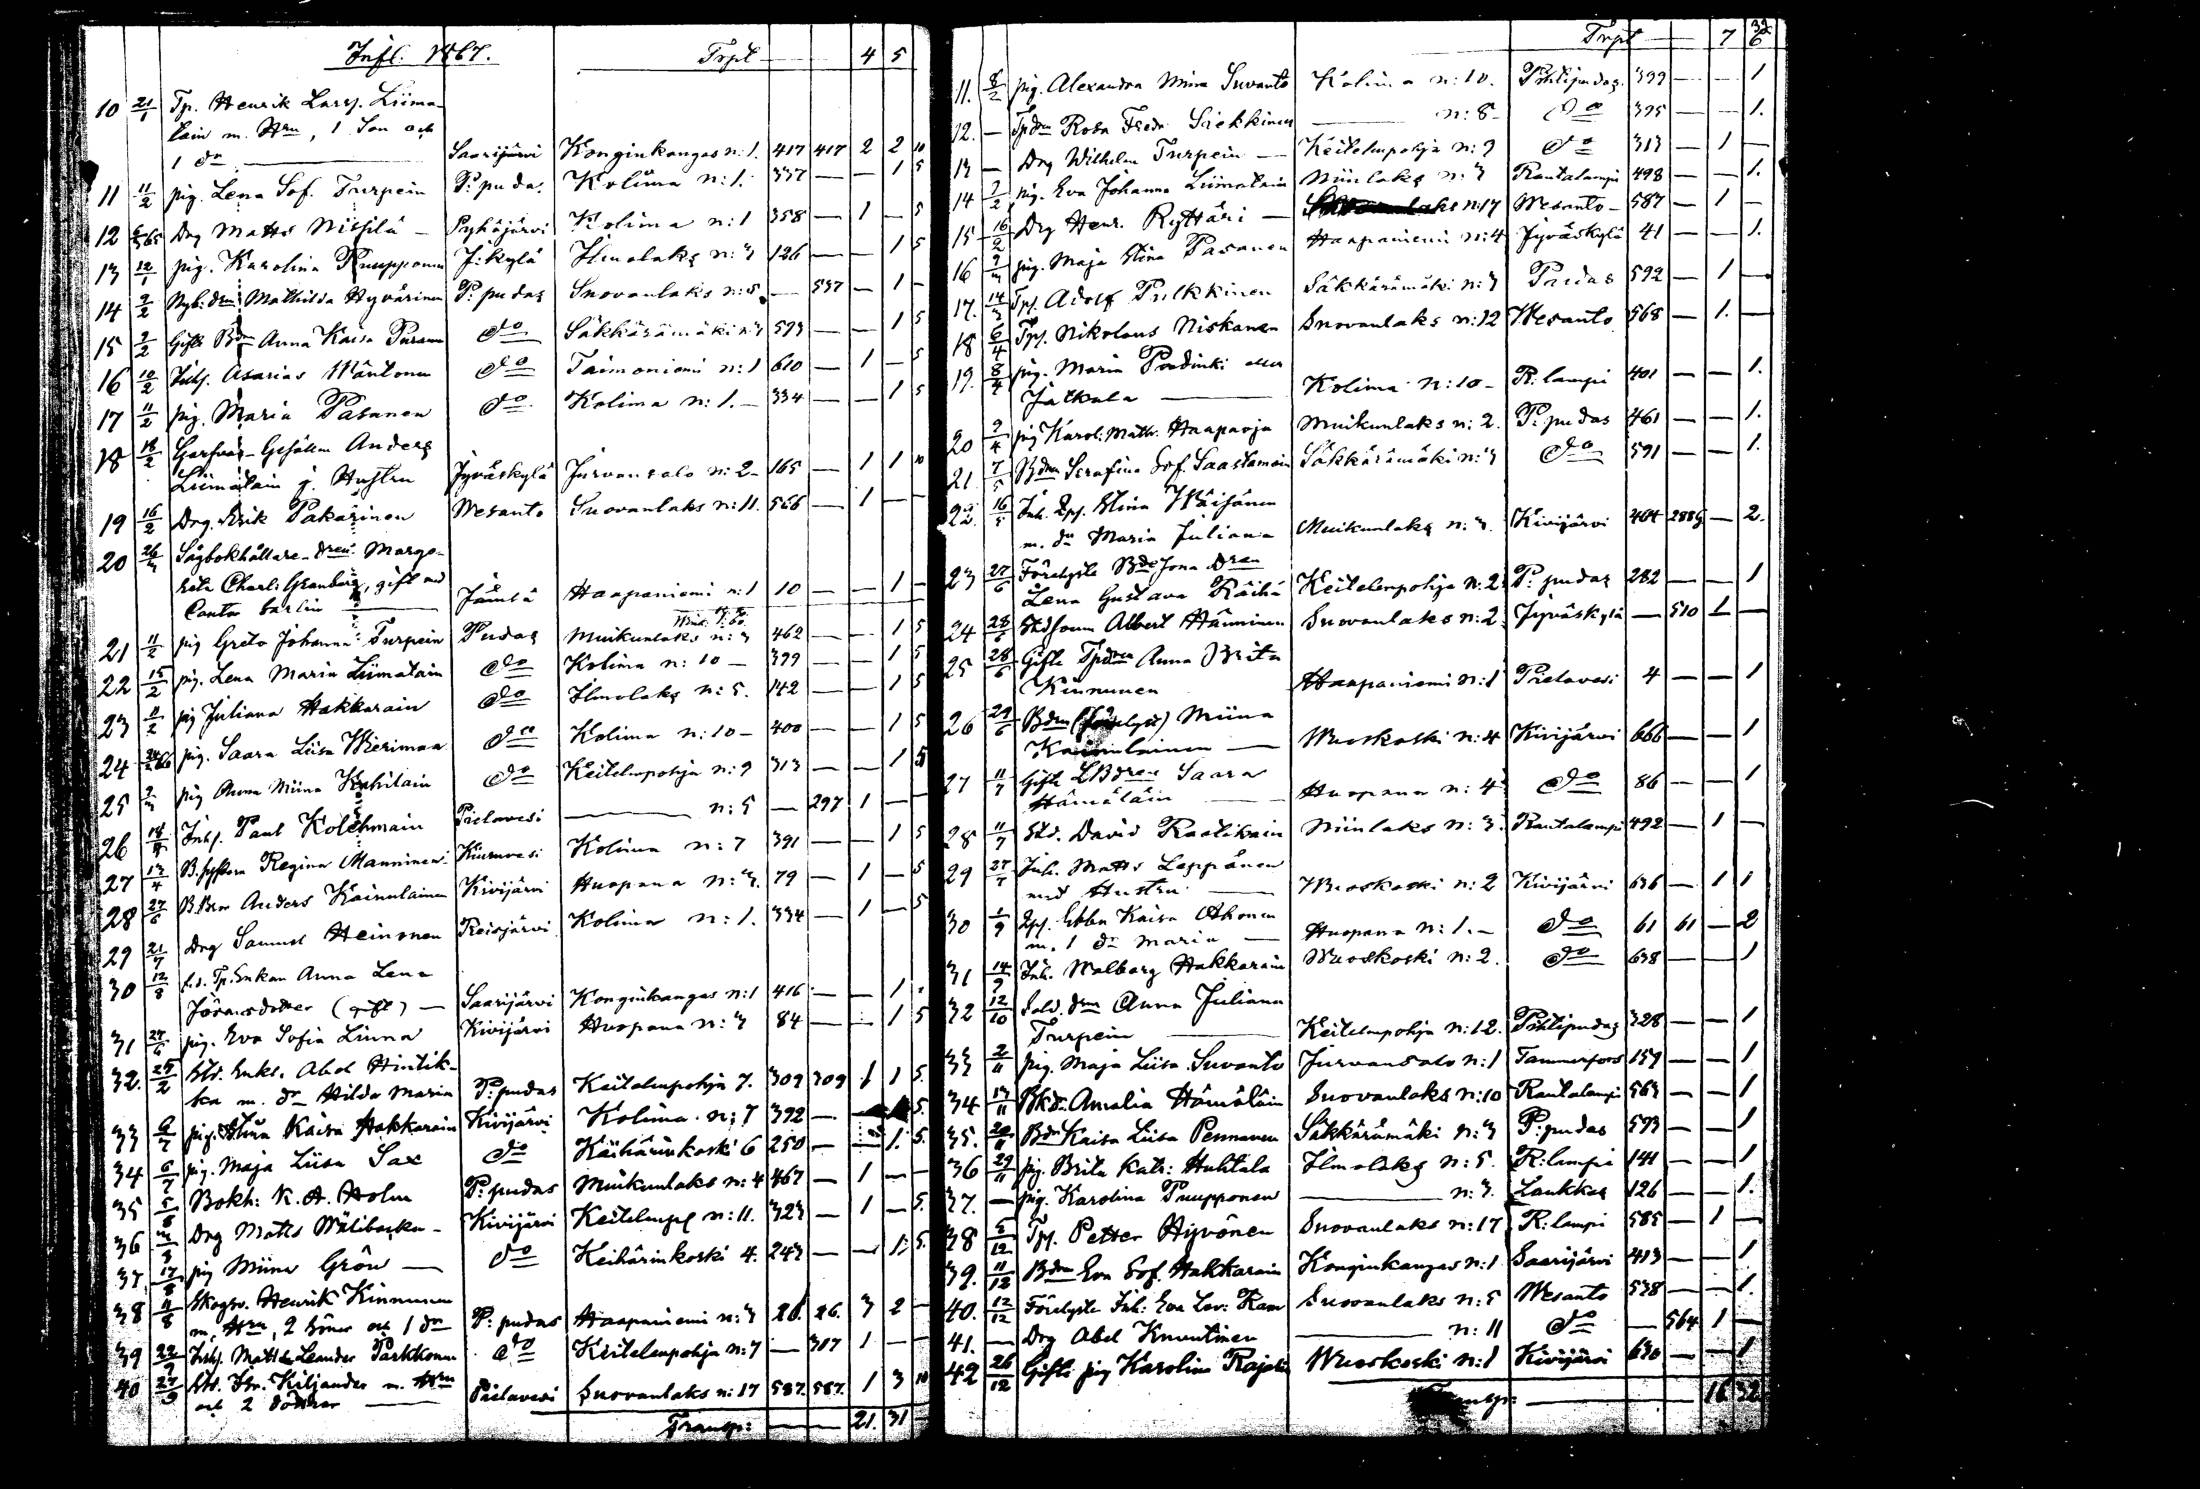 Infl. 1867. Trpt — 4 5
10 21/1 Tp. Henrik Larss. Liima-
tain m. Hru, 1 Son och
1 dr — Saarijärvi Konginkangas n:1. 417 417 2 2 10
11 11/2 pig. Lena Sof. Turpein P:pudas Kolima n:1. 337 — — 1 5
12 Drg Matts Niskilä — Pyhäjärvi Kolima n:1 358 — 1 — 5
13 12/1 pig. Karolina Ruupponen J:kylä Ilmolaks n:3 126 — — 1 5
14 2/2 Nyb:drn Mathilda Hyvärinen P:pudas Suovanlaks n:5. — 537 — 1 —
15 2/2 Gifta Bdrn Anna Kaisa Puranen do Säkkärämäki n:3 593 — — 1 5
16 10/2 Inhs. Asarias Mäntonen do Taimoniemi n:1 610 — 1 — 5
17 11/2 pig. Maria Pasanen do Kolima n:1. — 334 — — 1 5
18 18/2 Garfvar-Gesällen Anders
Liimatain j. Hustru Jyväskylä Jurvansalo n:2 — 165 — 1 1 10
19 16/2 Drg. Erik Pakarinen Wesanto Suovanlaks n:11. 566 — 1 — —
20 26/3 Sågbokhållare-dren Marga-
reta Charl: Granberg, gift med
Cantor Carlin — Jämsä Haapaniemi n:1 10 — — 1 —
21 11/2 pig Greta Johanna Turpein Pudas Muikunlaks n:3 462 — — 1 5
22 15/2 pig. Lena Maria Liimatain do Kolima n:10 — 399 — — 1 5
23 11/2 pig Juliana Hakkarain do Ilmolaks n:5. 142 — — 1 5
24 pig. Saara Liisa Wierimaa do Kolima n:10 — 400 — — 1 5
25 2/3 pig Anna Miina Kahilain do Keitelenpohja n:9 313 — — 1 5
26 Inhs. Paul Kolehmain Pielavesi — n:5 — 297 1 — —
27 13/4 B.systern Regina Manninen Kiuruvesi Kolima n:7 391 — — 1 5
28 27/6 B.Bror Anders Kainulainen Kivijärvi Huopana n:3. 79 — 1 — 5
29 21/7 Drg Samuel Heinonen Reisjärvi Kolima n:1. 334 — 1 — 5
30 12/8 f.d. Tp.Enkan Anna Lena
Göransdotter (gift) — Saarijärvi Konginkangas n:1 416 — — 1
31 27/6 pig. Eva Sofia Linna Kivijärvi Huopana n:3 84 — — 1 5
32. 25/2 Sts. Enks. Abel Hintik-
ka m. dr Hilda Maria P:pudas Keitelenpohja 7. 309 309 1 1 5.
33 pig. Stina Kaisa Hakkarain Kivijärvi Kolima n:7 392 — 5.
34 6/7 pig. Maja Liisa Sax do Keihärinkoski 6 250 — — 1. 5.
35 5/8 Bokh: K. A. Holm P:pudas Muikunlaks n:4 467 — 1 — —
36 Drg Matts Wälibacka — Kivijärvi Keitelenp n:11. 323 — 1 — 5.
37 17/8 pig Miina Grön — do Keihärinkoski 4. 243 — — 1. 5.
38 11/8 Skogsv. Henrik Kinnunen
m. Hru, 2 Söner och 1 dr P:pudas Haapaniemi n:3 26. 26. 3 2 —
39 22/9 Inhs. Matts Leander Parkkonen do Keitelenpohja n:7 — 307 1 — —
40 27/9 Sts. Hr. Kiljander m. Hru
och 2 döttrar — Pielavesi Suovanlaks n:17 587. 587. 1 3 10
Transp: — 21. 31
Trpt — 7 6
11. 8/2 pig. Alexandra Mina Suvanto Kolima n:10. Pihtipudas. 399 — — 1
12. — Tpdrn Rosa Fredr. Siekkinen — n:8 — do 395 — — 1.
13 — Drg Wilhelm Turpein — Keitelenpohja n:9 do 313 — 1 —
14 7/2 pig. Eva Johanna Liimatain Niinlaks n:3 Rautalampi 498 — — 1.
15 16/2 Drg Henr. Ryttäri — n:17 Wesanto — 587 — 1 —
16 9/3 pig. Maja Stina Pasanen Haapaniemi n:4 Jyväskylä 41 — — 1.
17. 14/3 Tps. Adolf Pulkkinen Säkkärämäki n:3 Pudas 592 — 1 —
18 6/4 Tps. Nikolaus Niskanen Suovanlaks n:12 Wesanto 568 — 1. —
19. 8/4 pig. Maria Poudinki eller
Jatkola — Kolima n:10 — R:lampi 401 — — 1.
20 9/4 pig Karol: Math. Haapaoja Muikunlaks n:2. P:pudas 461 — — 1.
21 7/5 Bdrn Serafina Sof. Saastamoin Säkkärämäki n:3 do 591 — — 1.
22 16/5 Inh. Eps. Stina Häifänen
m. dr Maria Juliana Muikunlaks n:3. Kivijärvi 464 — 2.
23 27/6 Förelyste Bde Jona Dren
Lena Gustava Räihä Keitelenpohja n:2 P:pudas 282 — — 1
24 28/6 Stdsonen Albert Hänninen Suovanlaks n:2 Jyväskylä — 510 1 —
25 28/6 Gifta Tpdren Anna Brita
Kinnunen Haapaniemi n:1 Pielavesi 4 — — 1
26 29/6 Bdrn (förelyst) Miina
Kainulainen — Wuoskoski n:4 Kivijärvi 666 — — 1
27 11/7 Gifta LBdren Saara
Hämäläin — Huopana n:4 do 86 — — 1
28 11/7 Std. David Raatikain Niinlaks n:3. Rautalampi 492 — 1 —
29 27/7 Inh. Matts Leppänen
med Hustru — Wuoskoski n:2 Kivijärvi 636 — 1 1
30 1/9 Eps. Ebba Kaisa Ahonen
m. 1 dr Maria — Huopana n:1. — do 61 61 — 2
31 14/9 Inh. Walborg Hakkarain Wuoskoski n:2. do 638 — — 1
32 12/10 Sold. drn Anna Juliana
Turpein — Keitelenpohja n:12. Pihtipudas 328 — — 1
33 2/11 pig. Maja Liisa Suvanto Jurvansalo n:1 Tammerfors 159 — — 1
34 13/11 Bkdr Amalia Hämäläin Suovanlaks n:10 Rautalampi 563 — — 1
35. 20/11 Bdrn Kaisa Liisa Pennanen Säkkärämäki n:3 P:pudas 593 — — 1
36 29/11 pig. Brita Katr: Huhtala Ilmolaks n:5. R:lampi 141 — — 1
37. — pig. Karolina Puupponen — n:3. Laukkas 126 — — 1.
38 5/12 Tps. Petter Hyvönen Suovanlaks n:17 R:lampi 585 — 1 —
39. 11/12 Bdrn Eva Sof. Hakkarain Konginkangas n:1 Saarijärvi 413 — — 1
40. 12/12 Förelyste Inh: Eva Lov: Kam Suovanlaks n:5 Wesanto 538 — — 1.
41. — Drg Abel Knuutinen — n:11 do — 564 1 —
42 26/12 Gifta pig Karolina Rajala Wuoskoski n:1 Kivijärvi 630 — — 1
Transp: — 16 32